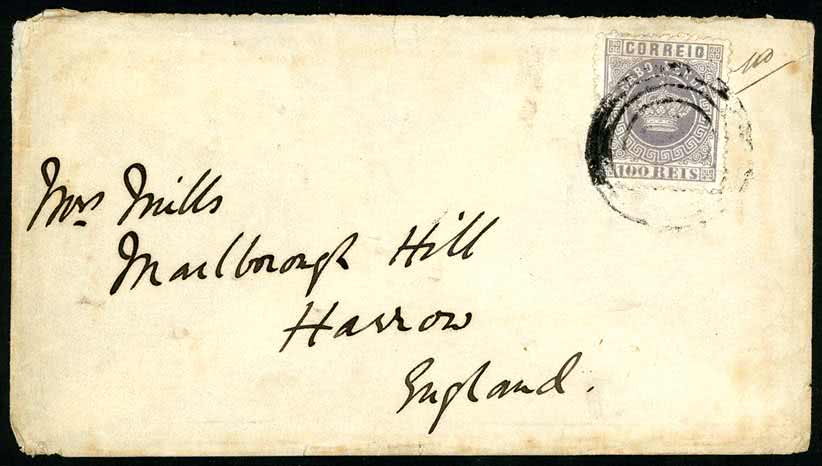 CORREIO
100 REIS
100
Mrs Mills
Marlborough Hill
Harrow
England.